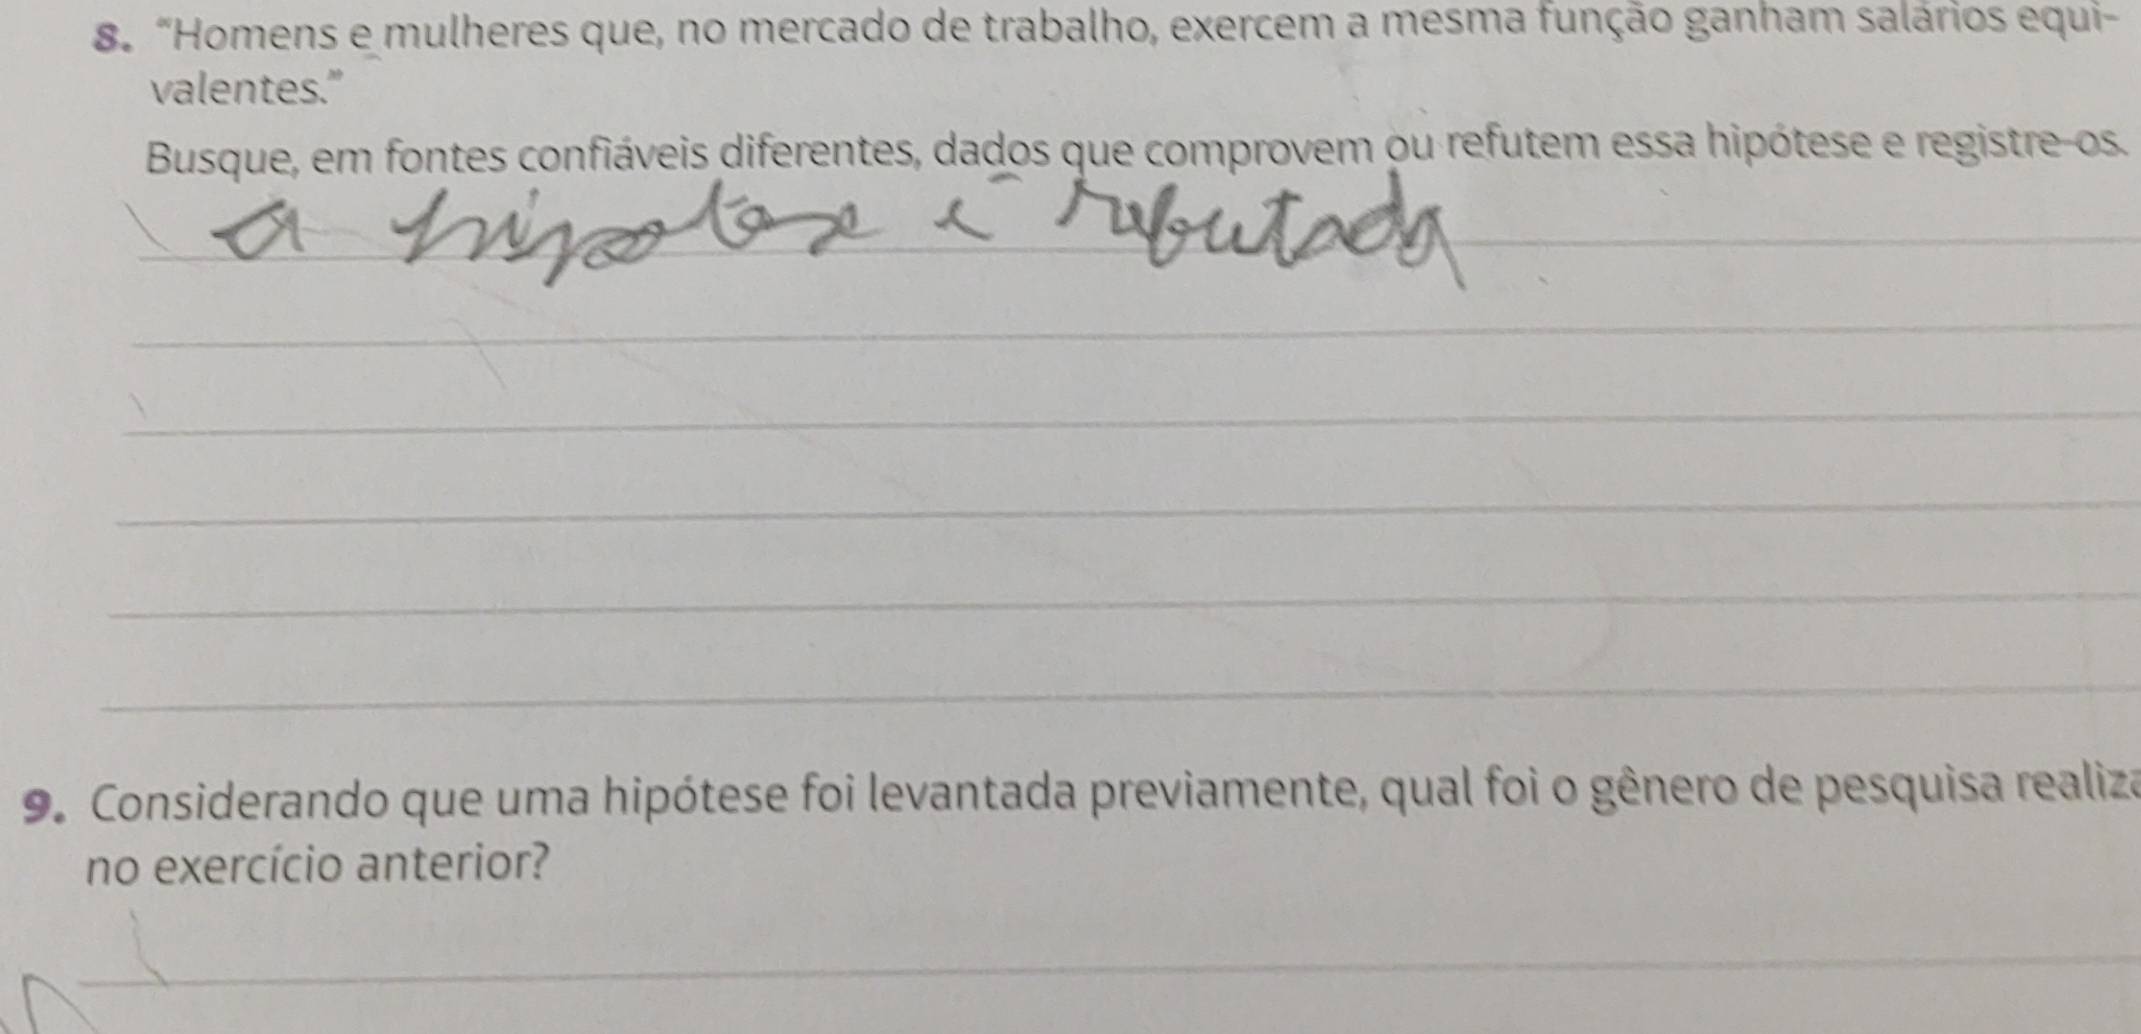 8. “Homens e mulheres que, no mercado de trabalho, exercem a mesma função ganham salários equi-
valentes.”
Busque, em fontes confiáveis diferentes, dados que comprovem ou refutem essa hipótese e registre-os.
a hipotese é refutada
9. Considerando que uma hipótese foi levantada previamente, qual foi o gênero de pesquisa realiza
no exercício anterior?